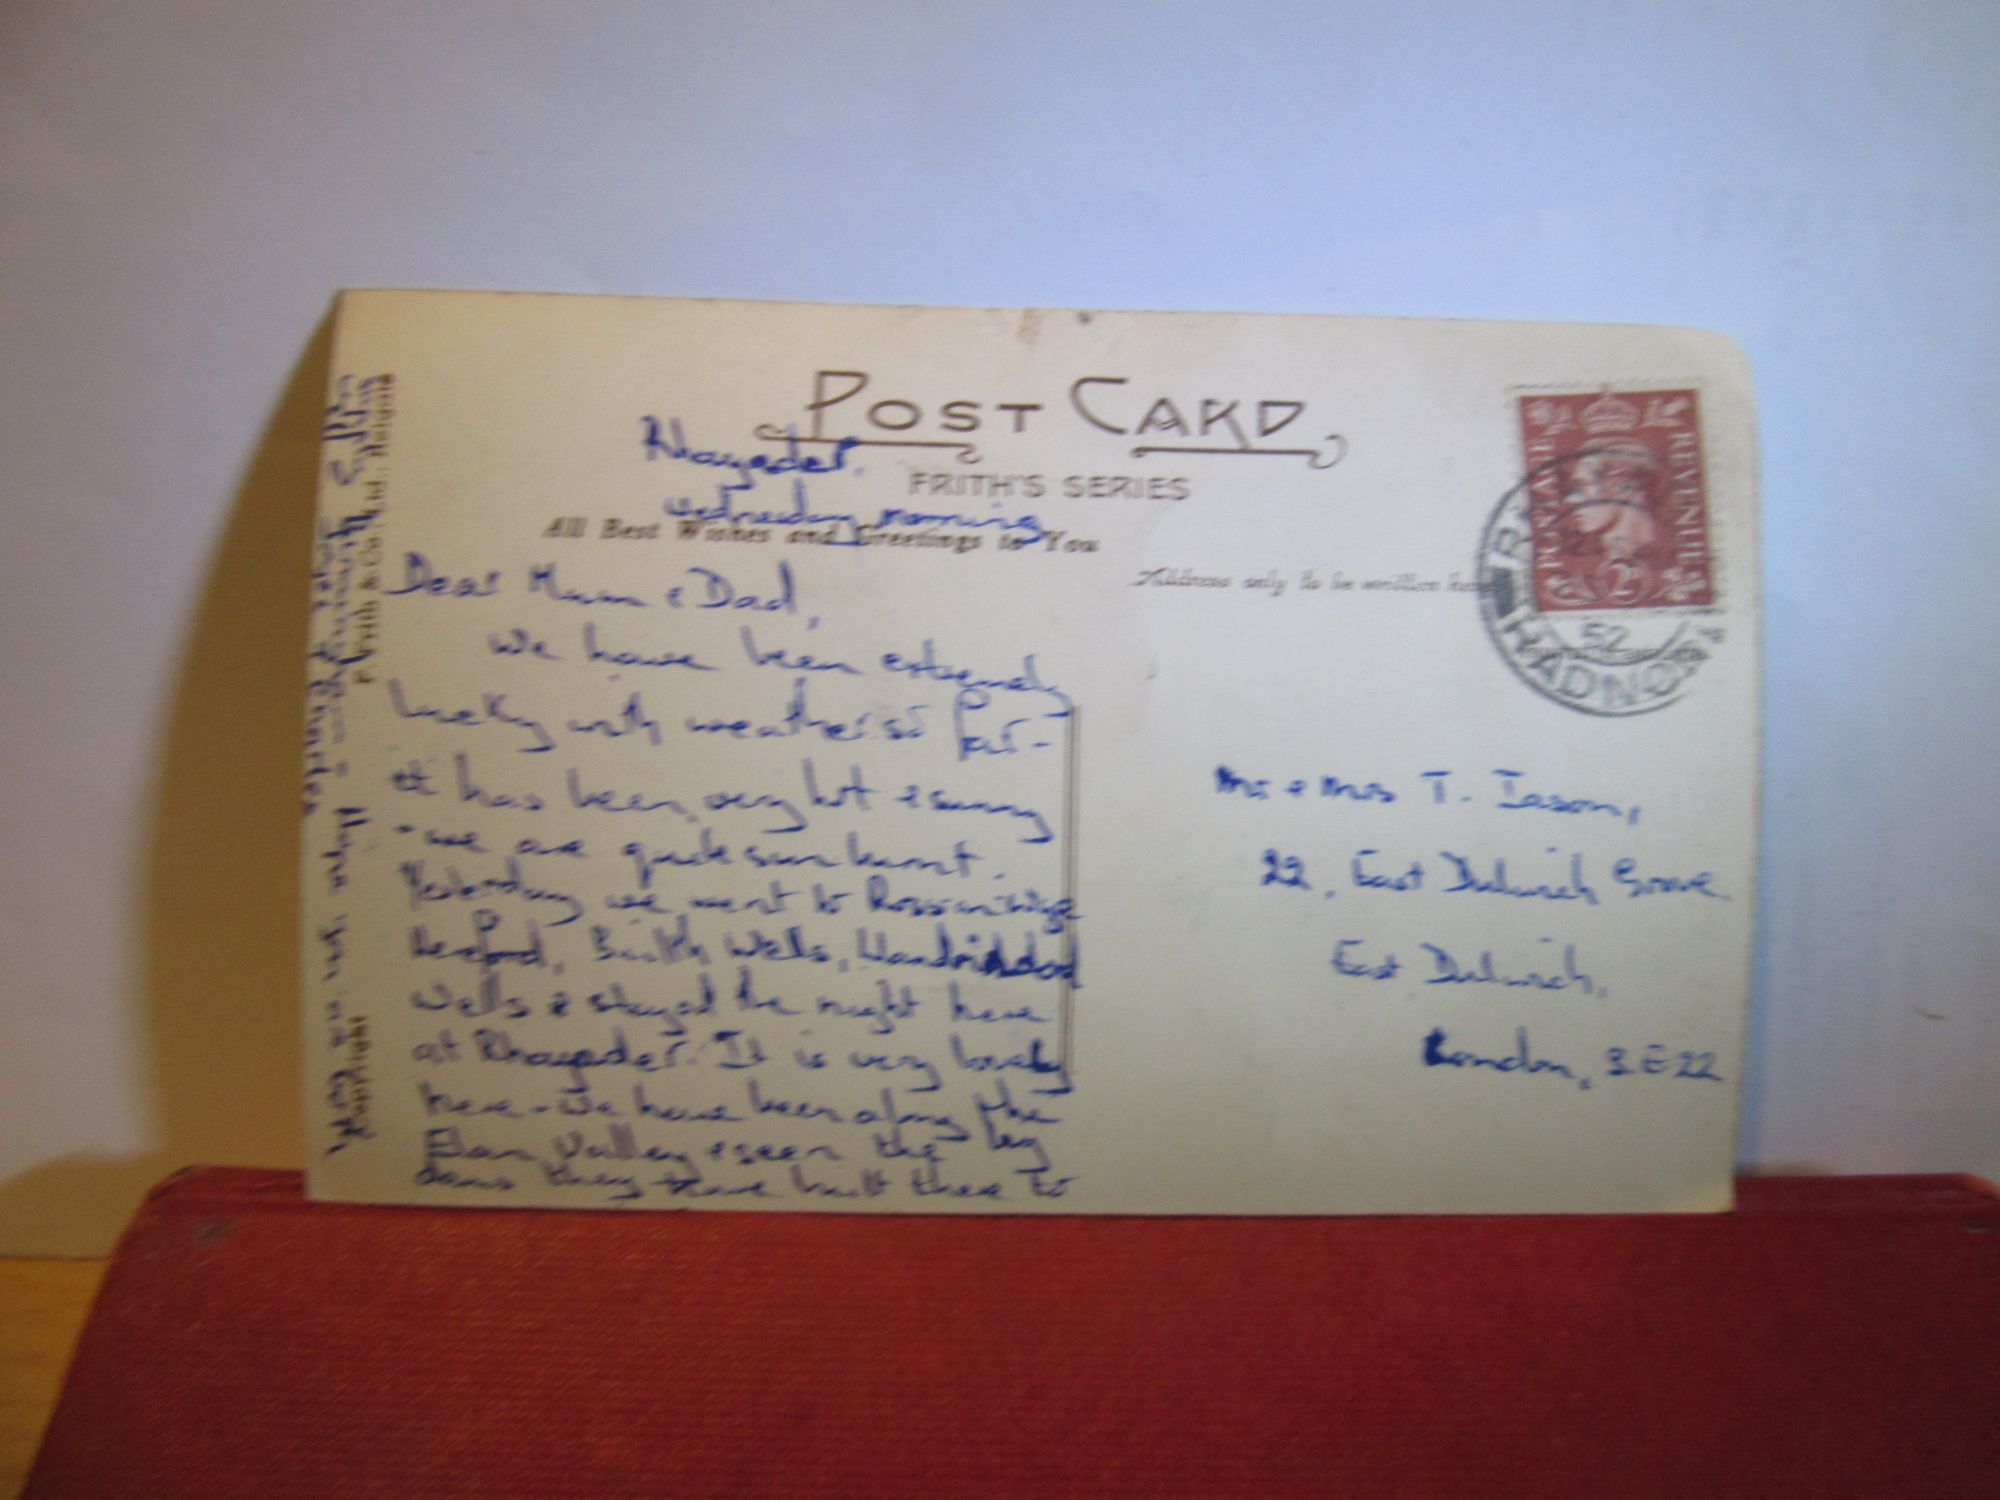 POST CARD
FRITH'S SERIES
Rhayader.
Wednesday morning
All Best Wishes and Greetings to You
Address only to be written here
POSTAGE REVENUE
2D
52
RADNOR
Dear Mum & Dad,
We have been extremely
lucky with weather so far-
it has been very hot & sunny
- we are quite sunburnt.
Yesterday we went to Ross on Wye
Hereford, Builth Wells, Llandrindod
Wells & stayed the night here
at Rhayader. It is very lovely
here - we have been along the
Elan Valley & seen the big
dams they have built there to
Mr & Mrs T. Iason,
22, East Dulwich Grove.
East Dulwich,
London, S.E 22
F. Frith & Co. Ltd., Reigate
Copyright